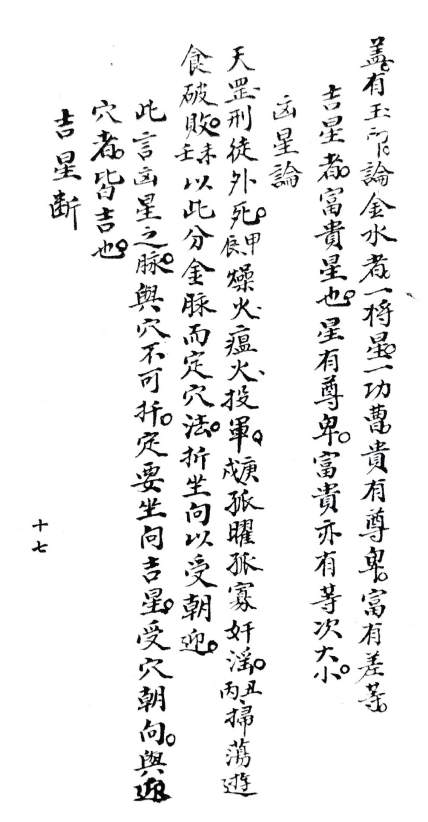 蓋有玉印論金水者一將星一功曹貴有尊卑。富有差等。
吉星者。富貴星也。星有尊卑。富貴亦有等次大小。
凶星論
天罡刑徒外死。甲辰燥火瘟火投軍。庚戌孤曜孤寡奸淫。丑丙掃蕩遊
食破敗。未壬以此分金脉而定穴法。折坐向以受朝迎。
此言凶星之脉。與穴不可扦。定要坐向吉星。受穴朝向。與迎
穴者。皆吉也。
吉星断
十七